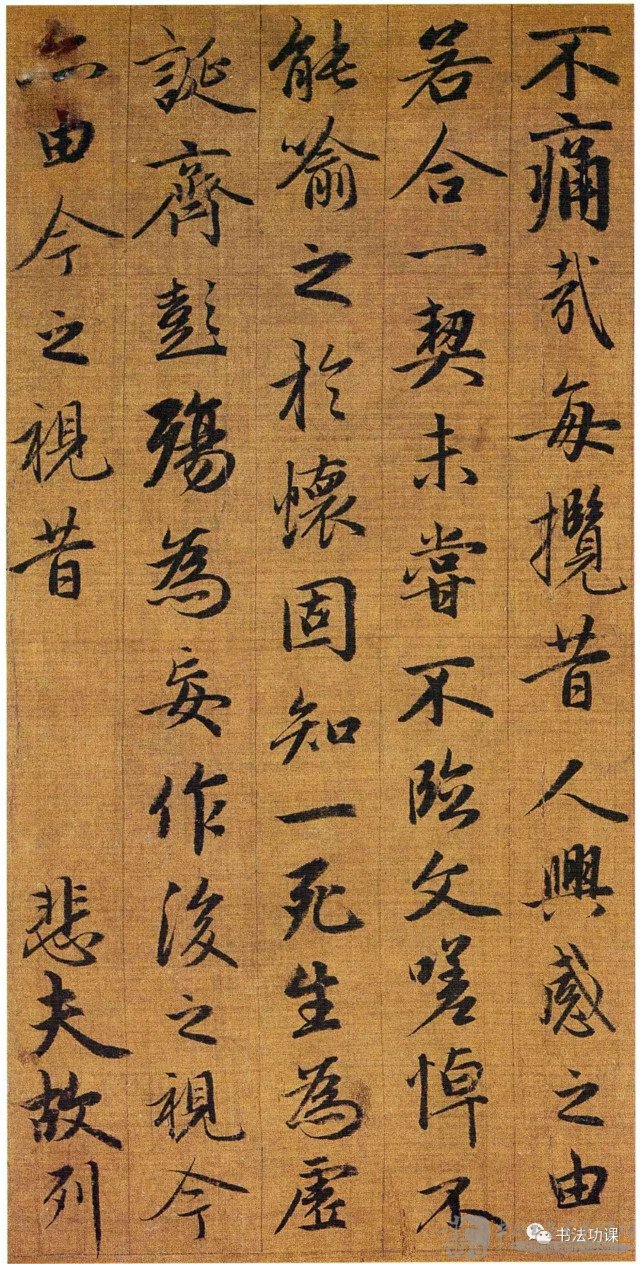 不痛哉每攬昔人興感之由
若合一契未甞不臨文嗟悼不
能喻之於懷固知一死生為虛
誕齊彭殤為妄作後之視今
亦由今之視昔 悲夫故列
书法功课